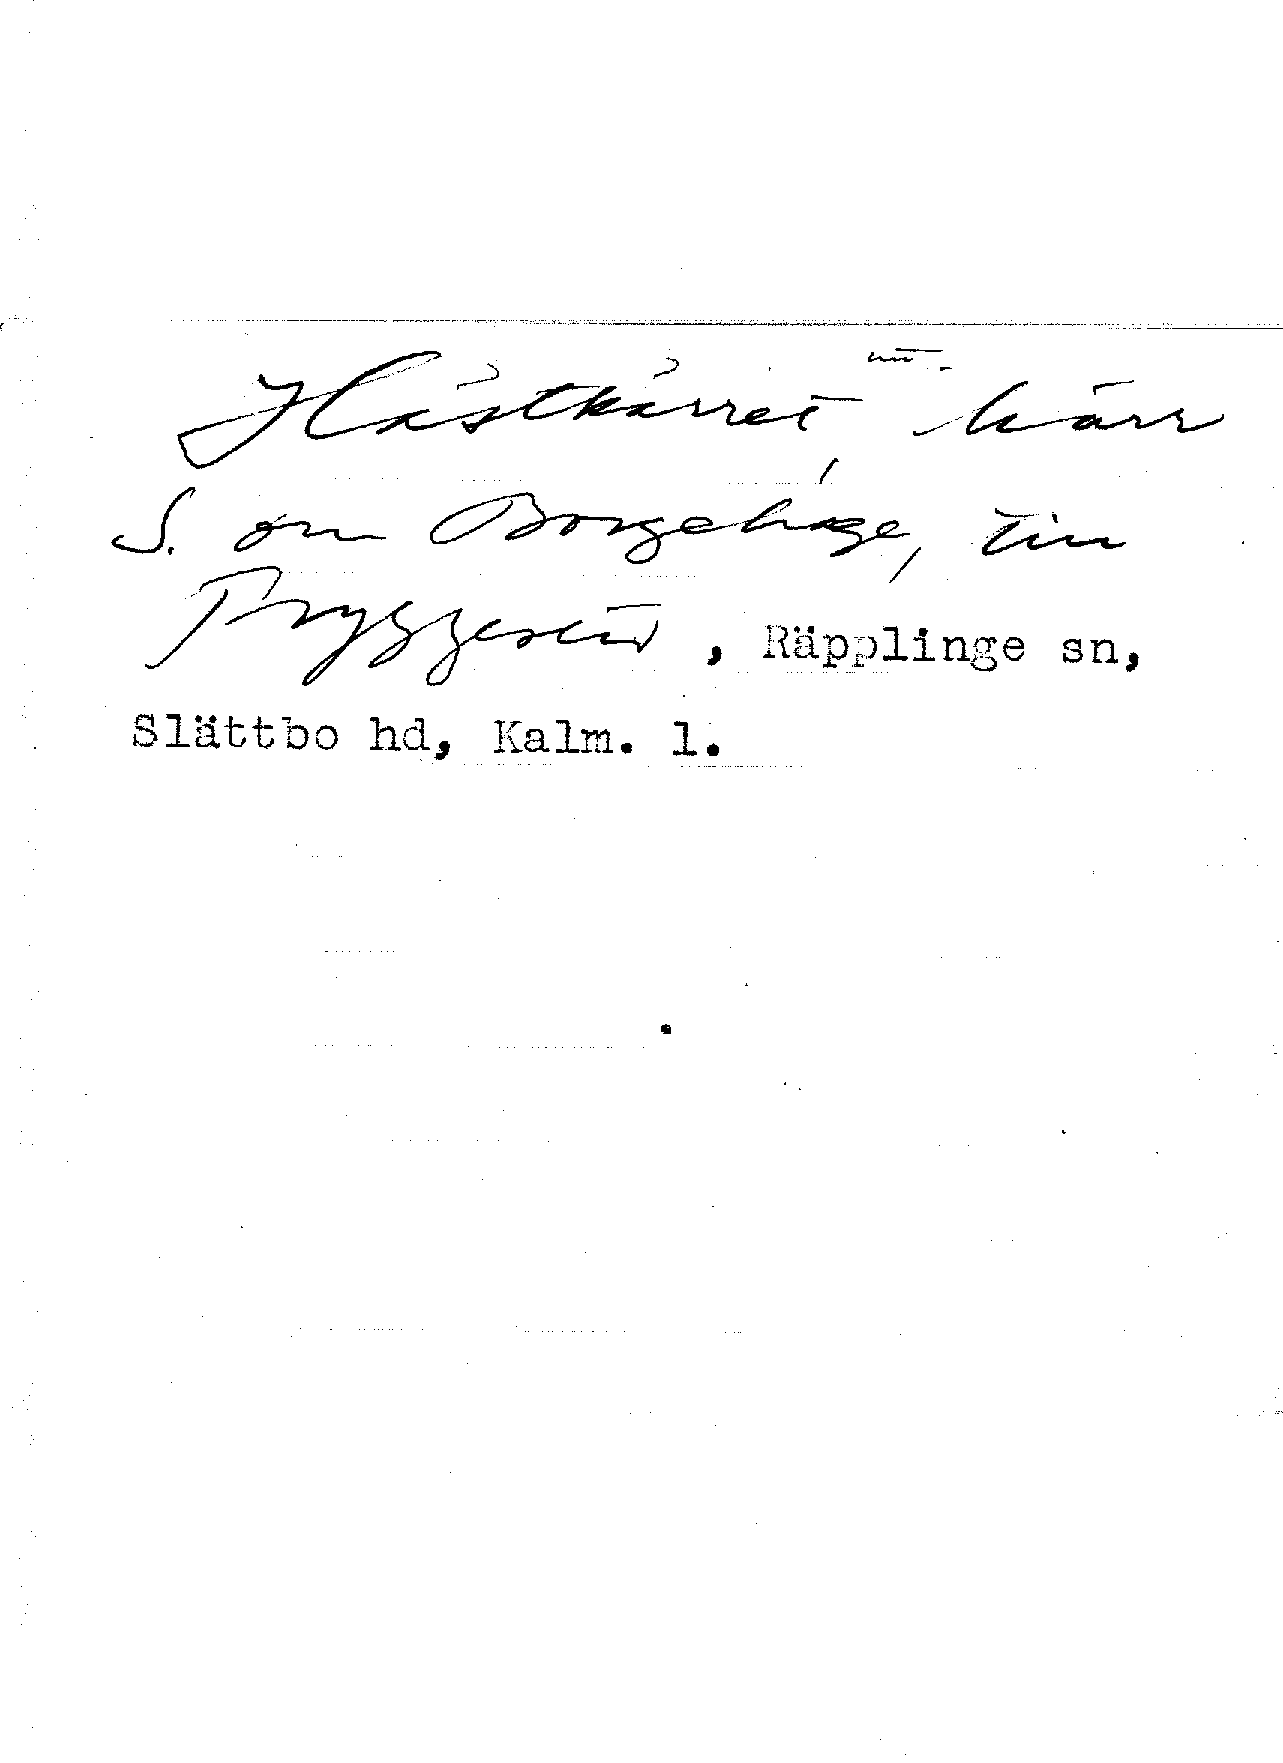 Hästkärret, kärr
S. om Borgehage, till
Pryggestad, Räpplinge sn,
Slättbo hd, Kalm. l.